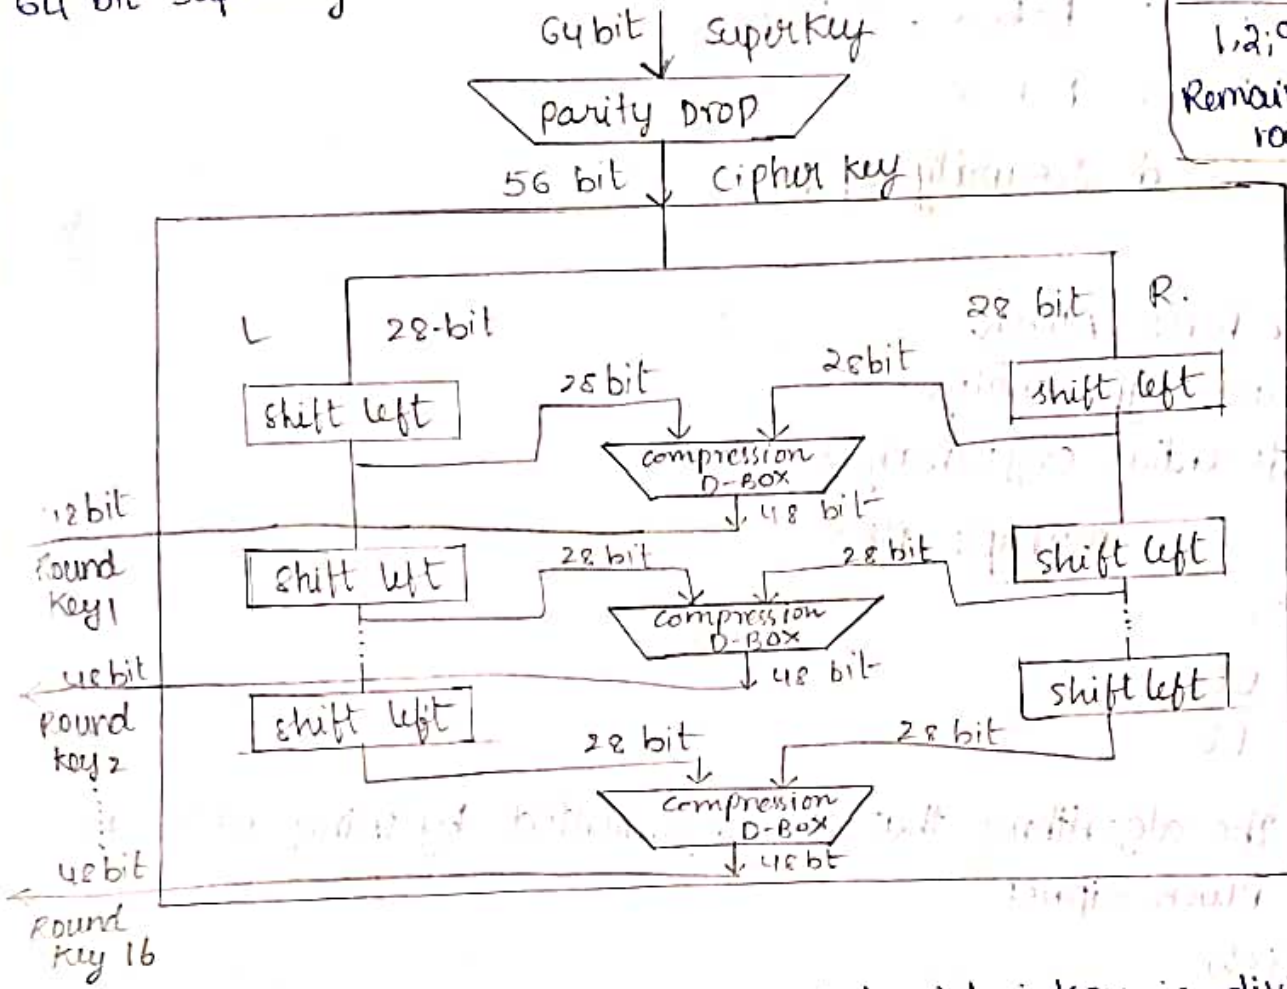 64 bit
64 bit Superkey
1,2,
parity Drop
56 bit Cipher key
L 28-bit
28 bit R.
shift left
28 bit
28 bit
shift left
compression
D-BOX
48 bit
bit
Round
Key 1
shift left
28 bit
28 bit
shift left
compression
D-BOX
48 bit
48 bit
Round
key 2
shift left
shift left
28 bit
28 bit
compression
D-BOX
48 bt
48 bit
Round
key 16
key is